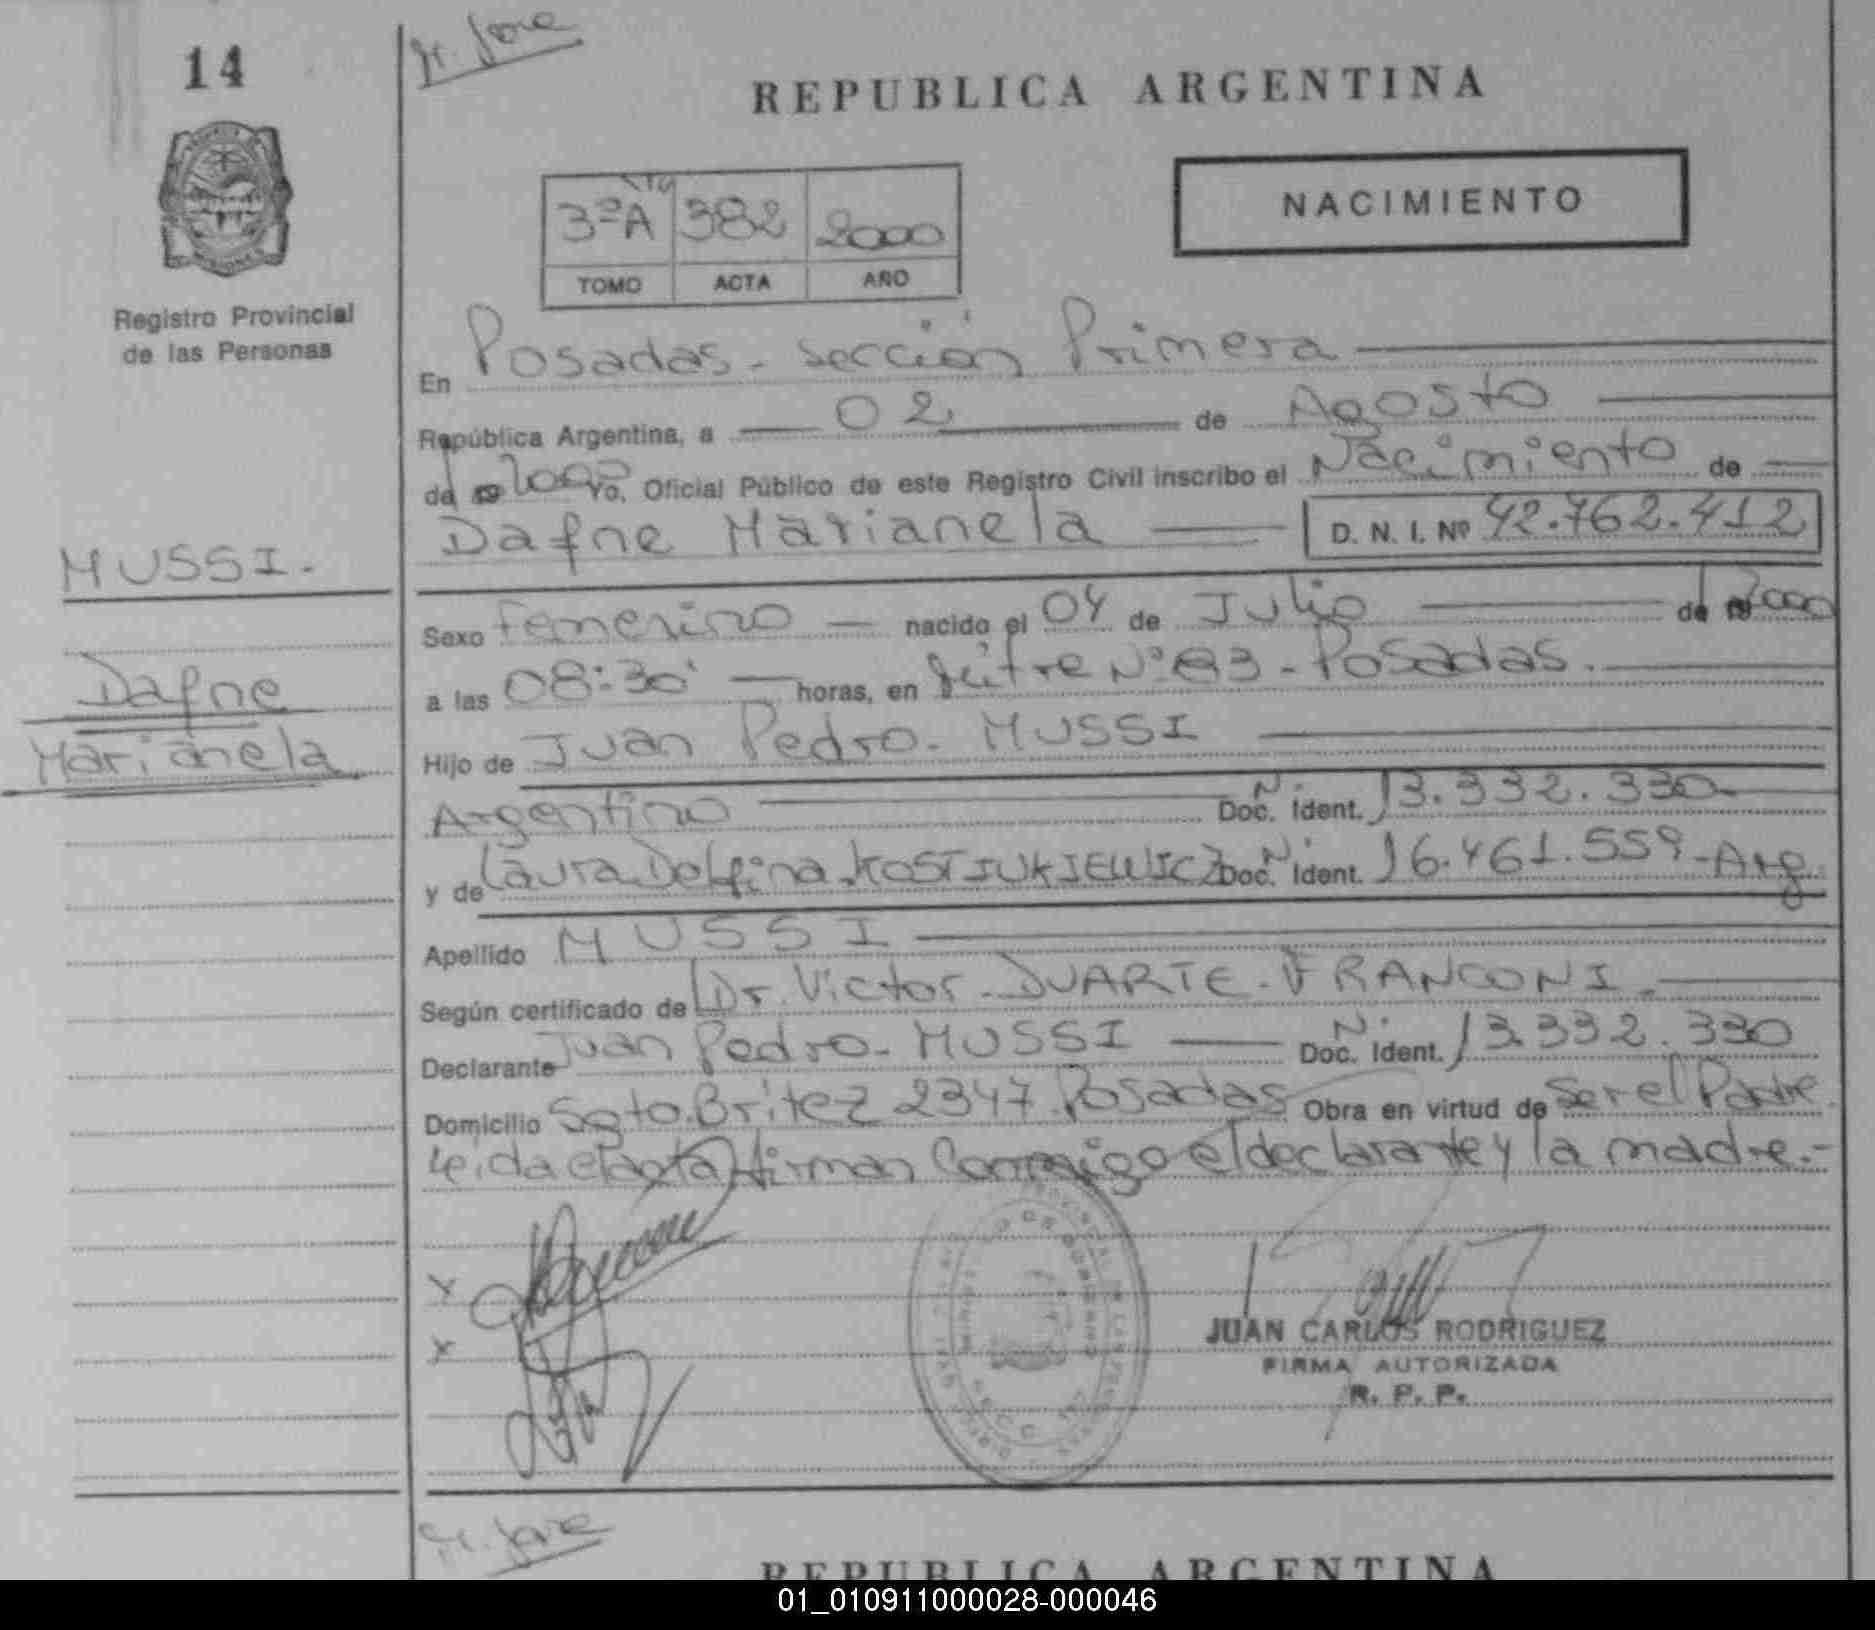 14
M. Jose
REPUBLICA ARGENTINA
NACIMIENTO
3ºA 382 2000
TOMO ACTA AÑO
Registro Provincial
de las Personas
En Posadas - Sección Primera
República Argentina, a 02 de Agosto
de 19 2000 Yo, Oficial Público de este Registro Civil inscribo el Nacimiento de
Dafne Marianela D. N. I. Nº 42.762.412
MUSSI.
Dafne
Marianela
Sexo Femenino nacido el 04 de Julio de 19 2000
a las 08:30' horas, en Mitre Nº 83 - Posadas.
Hijo de Juan Pedro. MUSSI
Argentino Doc. Ident. N. 13.332.330
y de Laura Delfina. KOSTIUKIEWICZ Doc. Ident. N. 16.461.559 - Arg.
Apellido MUSSI
Según certificado de Dr. Victor. DUARTE. FRANCONI.
Declarante Juan Pedro. MUSSI Doc. Ident. N. 13.332.330
Domicilio Sgto. Britez 2347. Posadas Obra en virtud de Ser el Padre.
Leida el acta firman Conmigo el declarante y la madre.-
X
X
JUAN CARLOS RODRIGUEZ
FIRMA AUTORIZADA
R. P. P.
M. Jose
REPUBLICA ARGENTINA
01_010911000028-000046